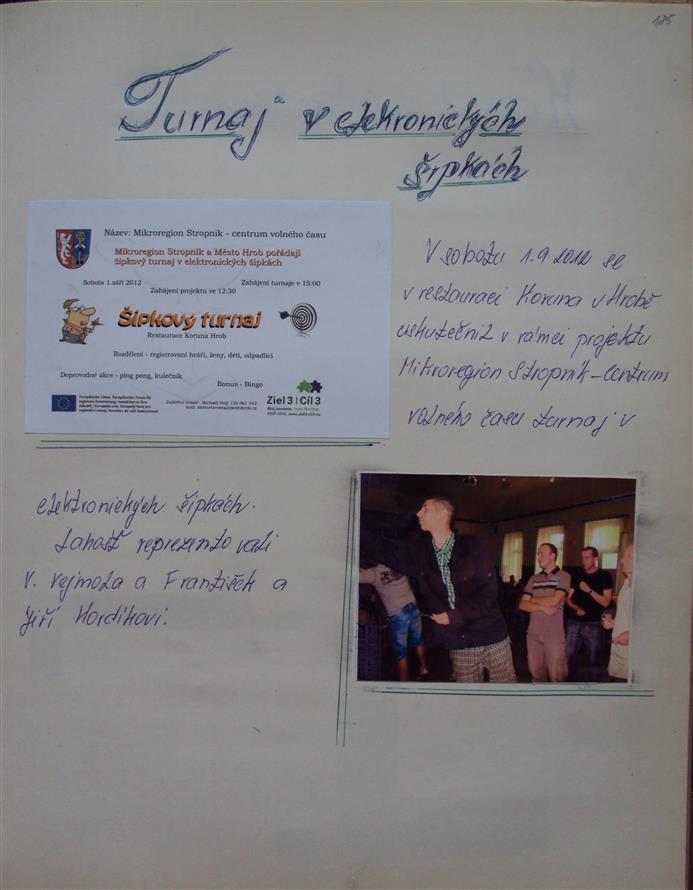 185
Turnaj v elekronických
šipkách
Název: Mikroregion Stropník - centrum volného času
Mikroregion Stropník a Město Hrob pořádají
šipkový turnaj v elektronických šipkách
Sobota 1.září 2012
Zahájení turnaje v 15:00
Zahájení projektu ve 12:30
Šipkový turnaj
Restaurace Koruna Hrob
Rozdělení - registrovaní hráči, ženy, děti, odpadlíci
Doprovodné akce - ping pong, kulečník
Bonus - Bingo
Ziel 3 | Cíl 3
V sobotu 1.9 2012 se
v restauraci Koruna v Hrobě
uskutečnil v rámci projektu
Mikroregion Stropník-Centrum
volného času turnaj v
elektronických šipkách.
reprezentovali
V. Vejmola a František a
Jiří Hordikovi.